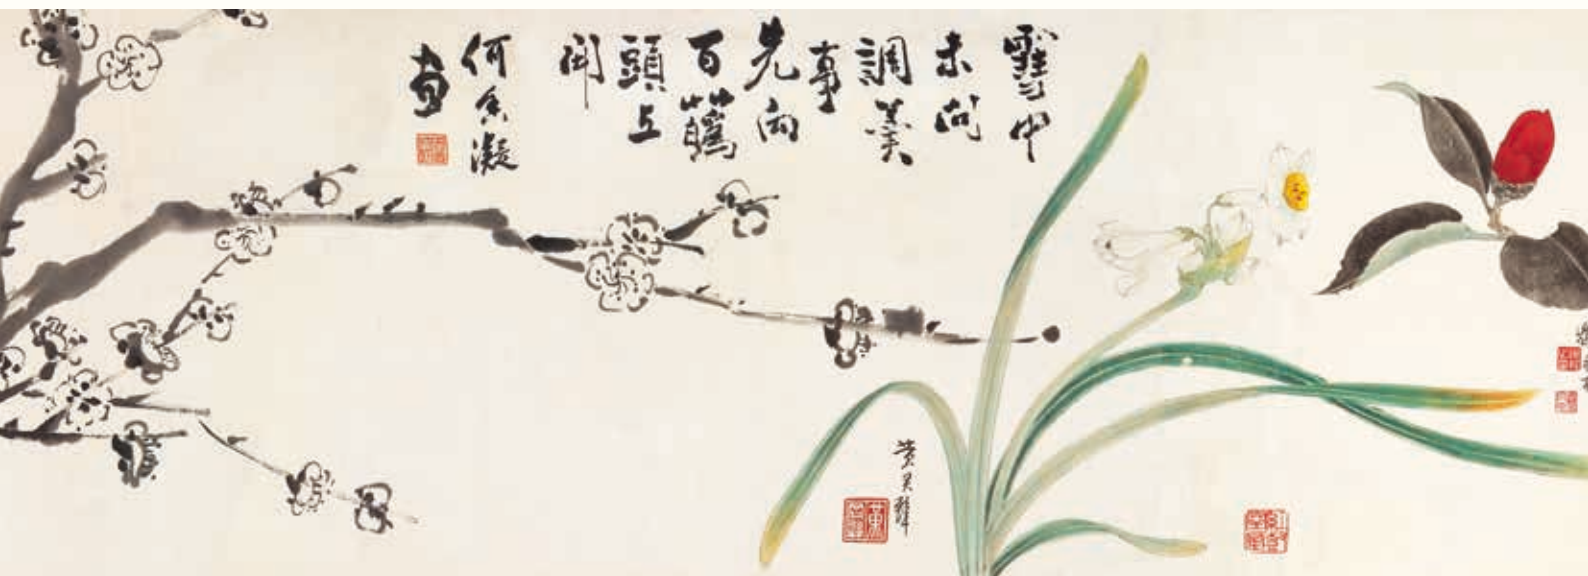 雪中
未問
調羹
事
先向
百蘤
頭上
開
何香凝
畫
黃君璧